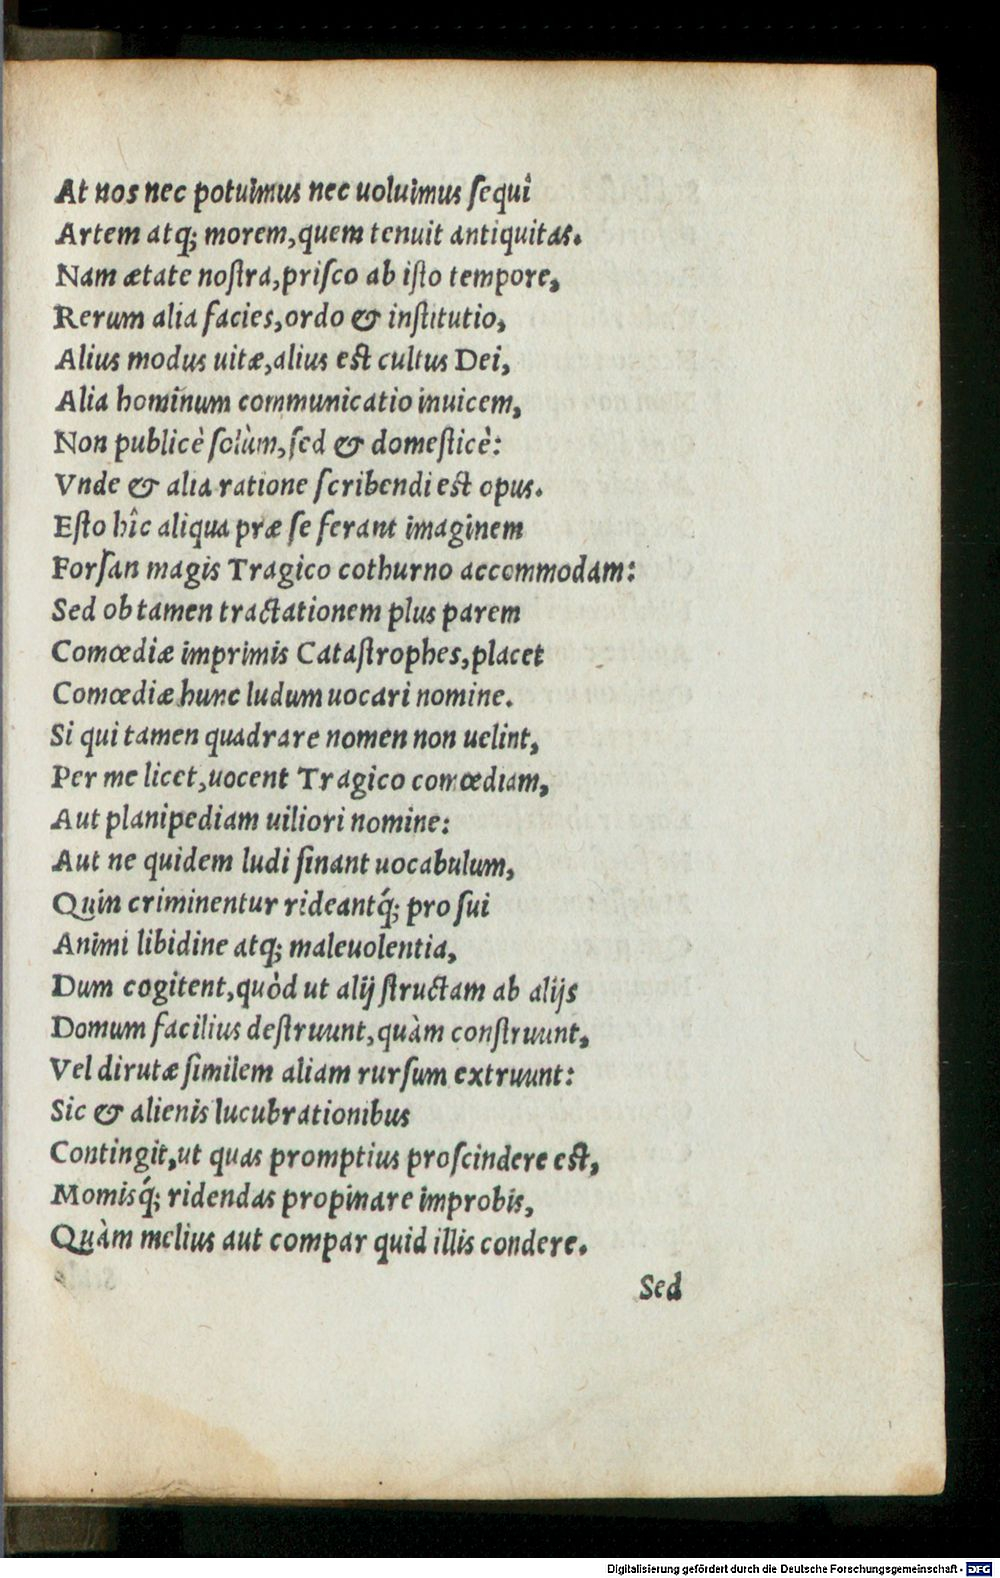 At nos nec potuimus nec uoluimus ſequi
Artem atq; morem, quem tenuit antiquitas.
Nam ætate noſtra, priſco ab iſto tempore,
Rerum alia facies, ordo & inſtitutio,
Alius modus uitæ, alius est cultus Dei,
Alia hominum communicatio inuicem,
Non publicè ſolùm, ſed & domeſticè:
Vnde & alia ratione ſcribendi est opus.
Eſto hîc aliqua præ ſe ferant imaginem
Forſan magis Tragico cothurno accommodam:
Sed ob tamen tractationem plus parem
Comœdiæ imprimis Cataſtrophes, placet
Comœdiæ hunc ludum uocari nomine.
Si qui tamen quadrare nomen non uelint,
Per me licet, uocent Tragico comœdiam,
Aut planipediam uiliori nomine:
Aut ne quidem ludi ſinant uocabulum,
Quin criminentur rideantq́; pro ſui
Animi libidine atq; maleuolentia,
Dum cogitent, quòd ut alij ſtructam ab alijs
Domum facilius deſtruunt, quàm conſtruunt,
Vel dirutæ ſimilem aliam rurſum extruunt:
Sic & alienis lucubrationibus
Contingit, ut quas promptius proſcindere est,
Momisq́; ridendas propinare improbis,
Quàm melius aut compar quid illis condere.
Sed
Digitalisierung gefördert durch die Deutsche Forschungsgemeinschaft - DFG